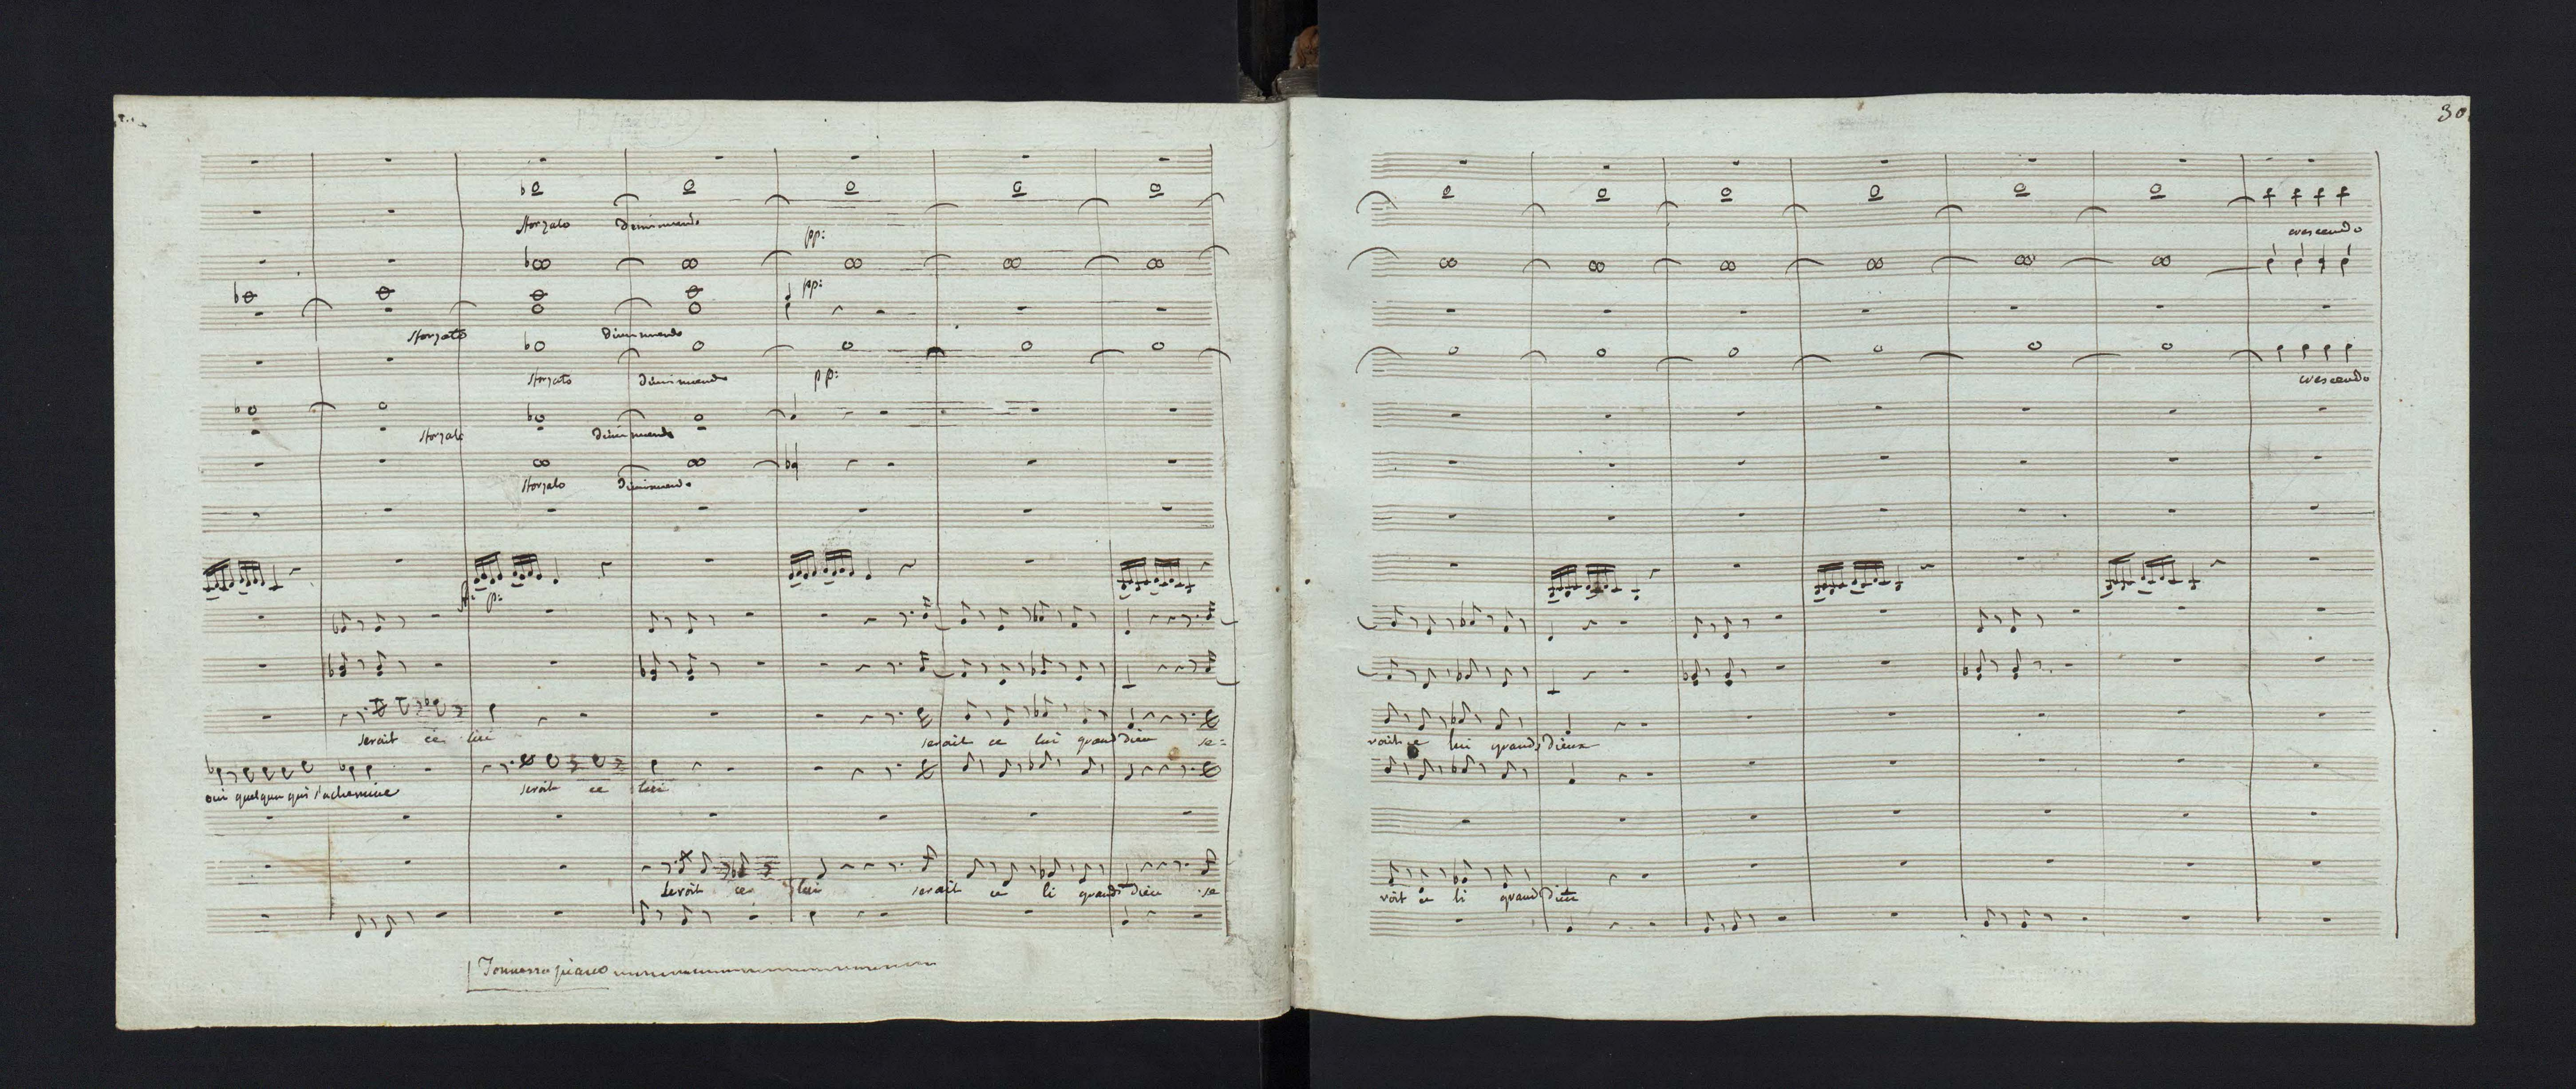 sforzato diminuendo
pp:
pp:
sforzato diminuendo
sforzato diminuendo pp:
sforzato diminuendo
sforzato diminuendo
p:
serait ce lui serait ce lui grand dieu se=
oui quelqun qui s'achemine serait ce lui
seroit ce lui serait ce li grand dieu se
Tonnerre piano
30
crescendo
crescendo
roit ce lui grands dieux
roit ce li grand dieu